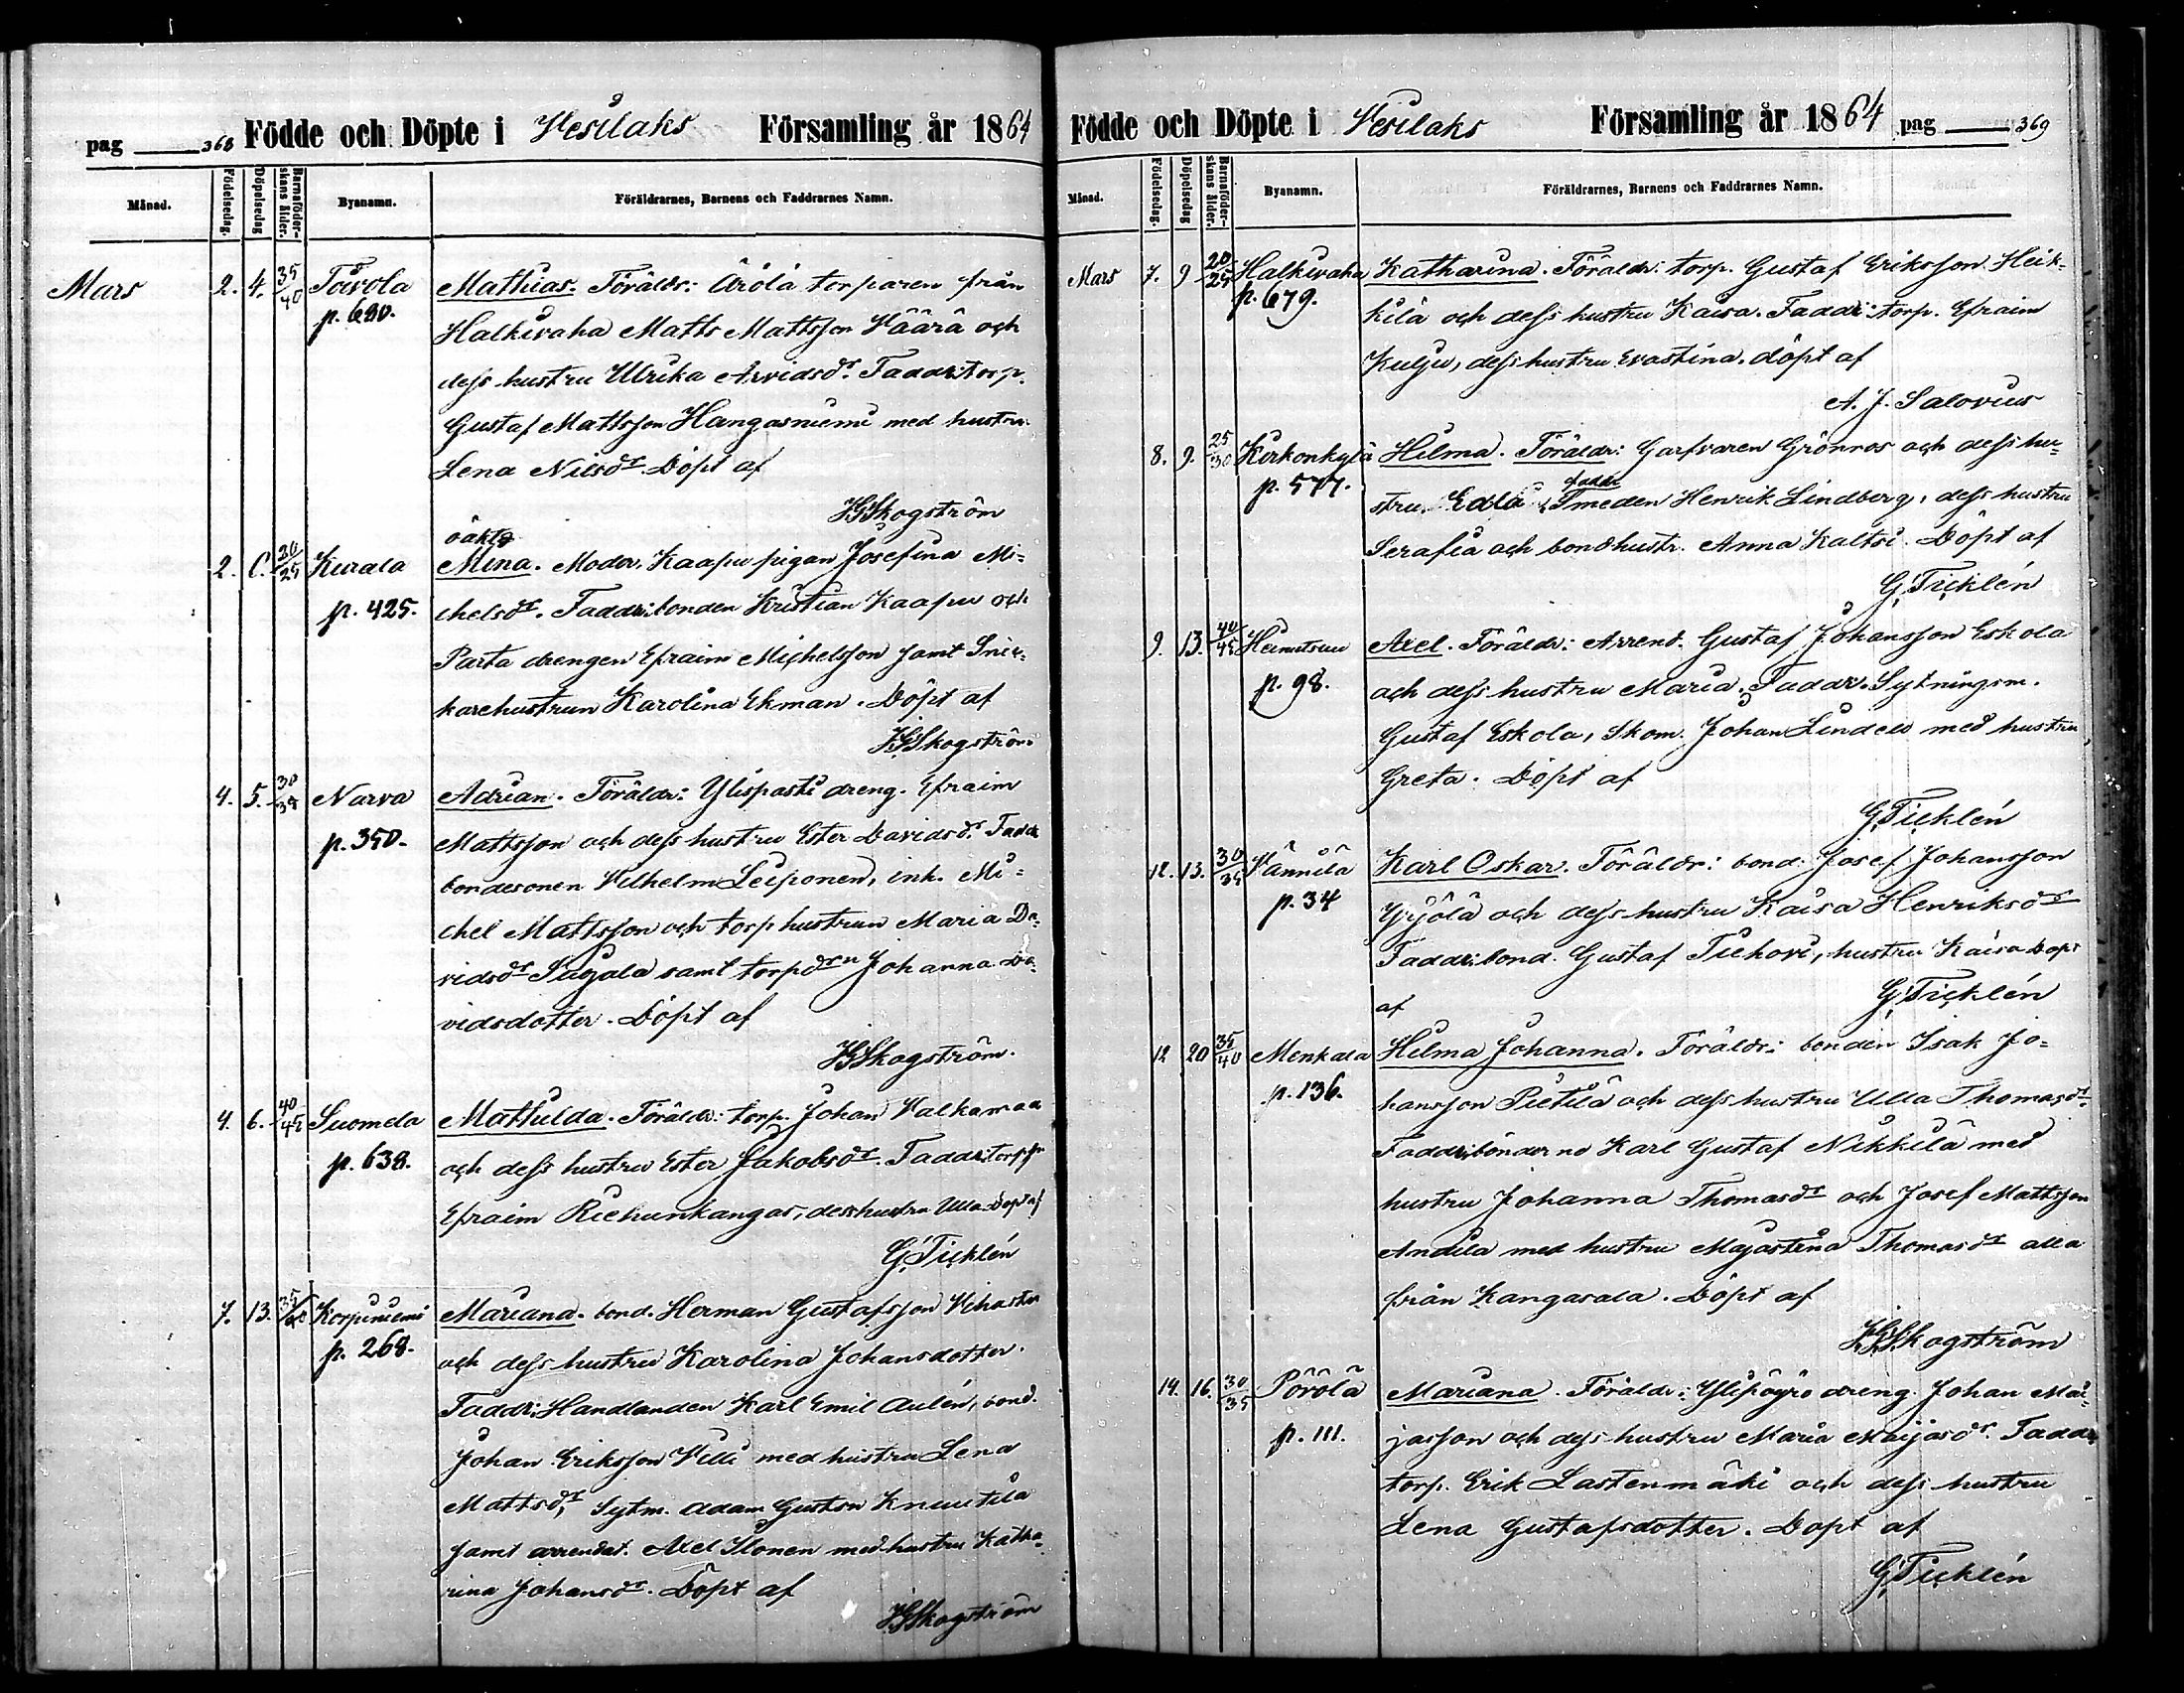 pag 368 Födde och Döpte i Vesilaks Församling år 1864
Månad. Födelsedag. Döpelsedag Barnaföderskans ålder. Byanamn. Föräldrarnes, Barnens och Faddrarnes Namn.
Mars 2. 4. 35/40 Toivola Mathias. Föräldr: Ärölä torparen från
p. 680. Halkivaha Matts Mattsson Väärä och
dess hustru Ulrika Arvidsdr. Faddr: torp.
Gustaf Mattsson Hangasniemi med hustru
Lena Nilsdr. Döpt af
HGSkogström
oäkta
2. 6. 20/25 Kurala Mina. Moder, Kaapu pigan Josefina Mi-
p. 425. chelsdr. Faddr: bonden Kristian Kaapu och
Parta drengen Efraim Michelsson samt Snic-
karehustrun Karolina Ekman. Döpt af
HGSkogström
4. 5. 30/35 Narva Adrian. Föräldr: Ylispasti dreng. Efraim
p. 350. Mattsson och dess hustru Ester Davidsdr. Faddr
bondesonen Vilhelm Leiponen, inh. Mi-
chel Mattsson och torphustrun Maria Da-
vidsdr Pajala samt torpdrn Johanna Da-
vidsdotter. Döpt af
HGSkogström.
4. 6. 40/45 Suomela Mathilda. Föräldr: torp. Johan Valkamaa
p. 638. och dess hustru Ester Jakobsdr. Faddr: torpn
Efraim Riehunkangas, dess hustru Ulla Döpt af
G. Ticklén
7. 13. 35/40 Korpiniemi Mariana. bond. Herman Gustafsson Vihastu
p. 268. och dess hustru Karolina Johansdotter.
Faddr: Handlanden Karl Emil Aulén, bond.
Johan Eriksson Villi med hustru Lena
Mattsdr, Sytm. Adam Gustson Knuutila
samt arrendat. Axel Ilonen med hustru Katha-
rina Johansdr. Döpt af
HGSkogström
Födde och Döpte i Vesilaks Församling år 1864 pag 369
Månad. Födelsedag. Döpelsedag Barnaföderskans ålder. Byanamn. Föräldrarnes, Barnens och Faddrarnes Namn.
Mars 7. 9 20/25 Halkivaha Katharina. Föräldr: torp. Gustaf Eriksson Heik-
p. 679. kilä och dess hustru Kaisa. Faddr: torp. Efraim
Kulju, dess hustru Evastina. döpt af
A. J. Salovius
8. 9. 25/30 Kirkonkylä Hilma. Föräldr: Garfvaren Grönros och dess hu-
faddr
p. 577. stru Edla, Smeden Henrik Lindberg, dess hustru
Serafia och bondhustr. Anna Kaltsi. Döpt af
G. Ticklén
9. 13. 40/45 Heinitsuu Axel. Föräldr: Arrend. Gustaf Johansson Eskola
p. 98. och dess hustru Maria. Faddr. Sytningsm.
Gustaf Eskola, Skom. Johan Lindell med hustru
Greta. Döpt af
G. Ticklén
12. 13. 30/35 Vännilä Karl Oskar. Föräldr: bond. Josef Johansson
p. 34 Yrjölä och dess hustru Kaisa Henriksdr
Faddr: bond. Gustaf Tiehovi, hustru Kaisa Döpt
af G. Ticklén
12 20 35/40 Menkala Hilma Johanna. Föräldr: bonden Isak Jo-
p. 136. hansson Pietilä och dess hustru Ulla Thomasdr.
Faddr: bönderne Karl Gustaf Nikkilä med
hustru Johanna Thomasdr och Josef Mattsson
Andila med hustru Majastina Thomasdr alla
från Kangasala. Döpt af
HGSkogström
14. 16. 30/35 Pörölä Mariana. Föräldr: Ylipöyrö dreng. Johan Mai-
p. 111. jasson och dess hustru Maria Maijasdr. Faddr
torp. Erik Lastenmäki och dess hustru
Lena Gustafsdotter. Döpt af
G. Ticklén